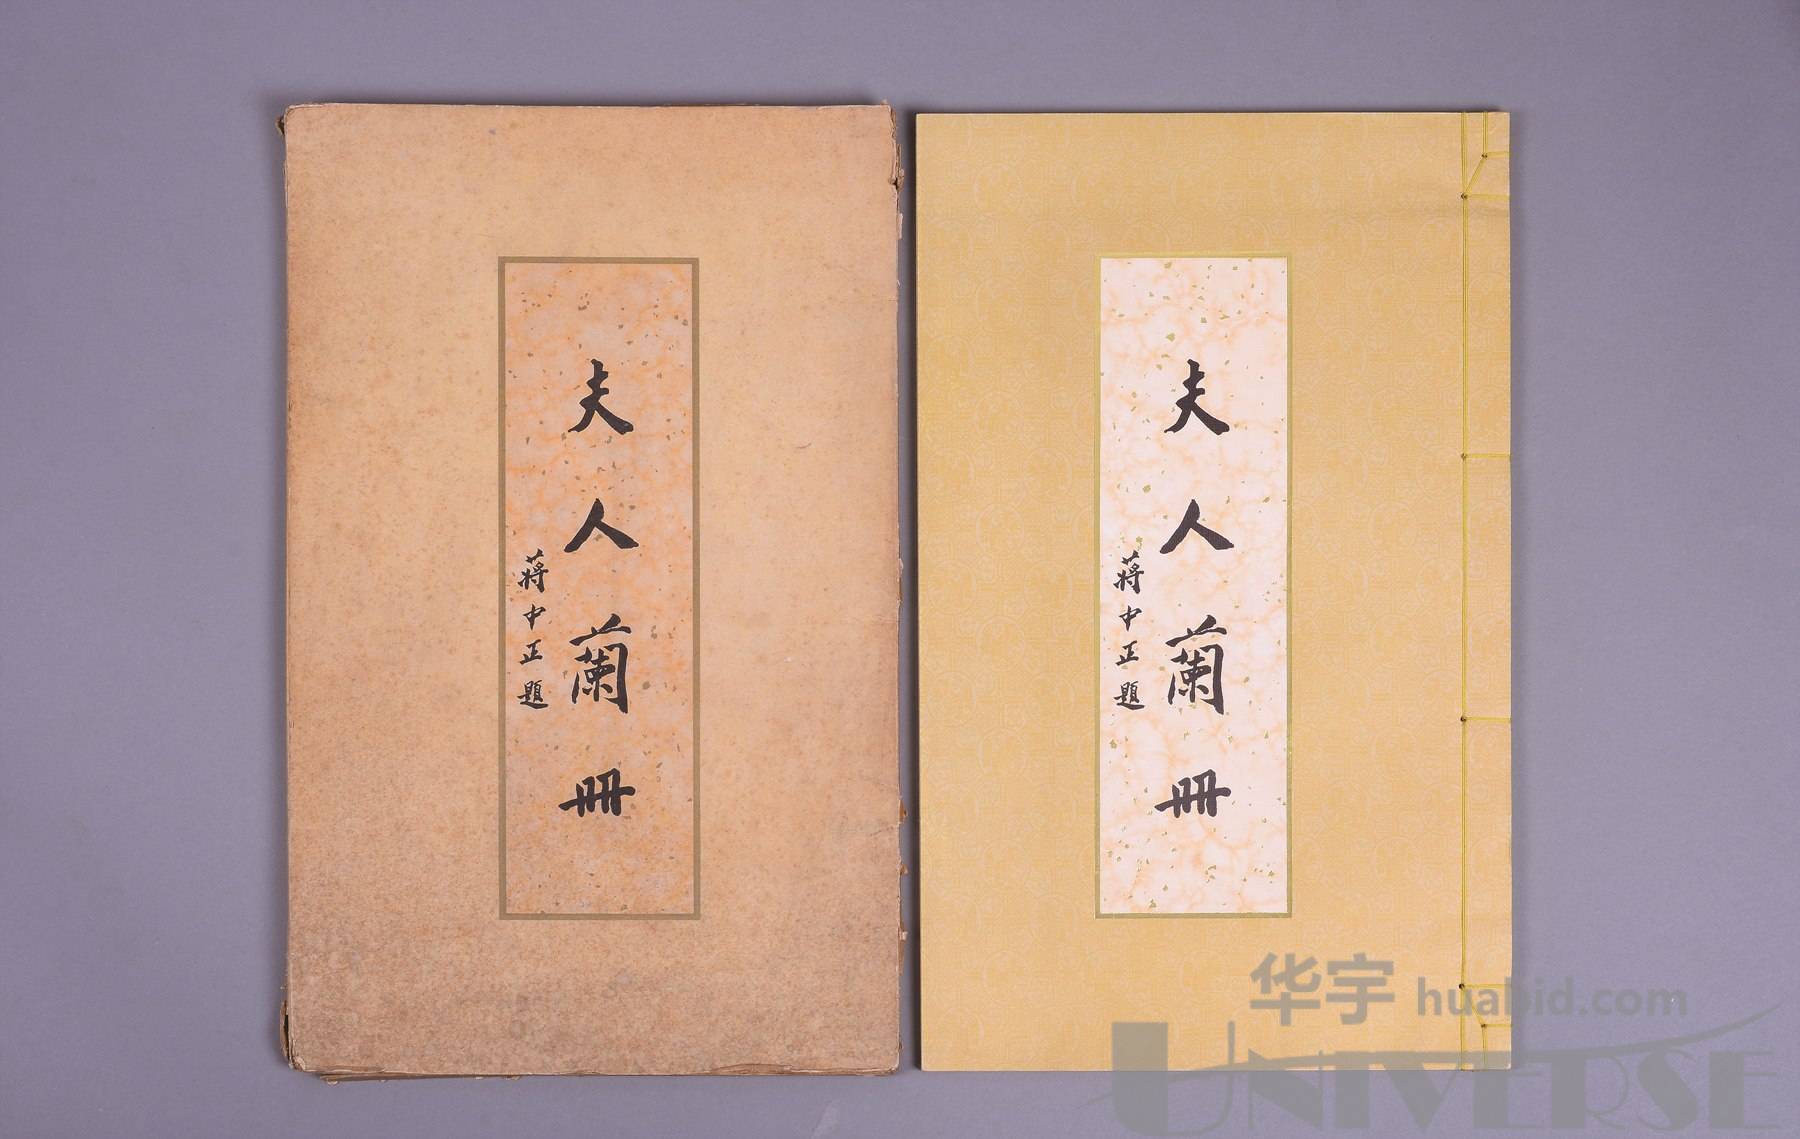 夫人蘭冊
蔣中正題
夫人蘭冊
蔣中正題
华宇 huabid.com
UNIVERSE